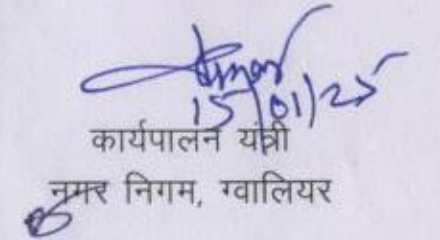 15/01/25
कार्यपालन यंत्री
नगर निगम, ग्वालियर